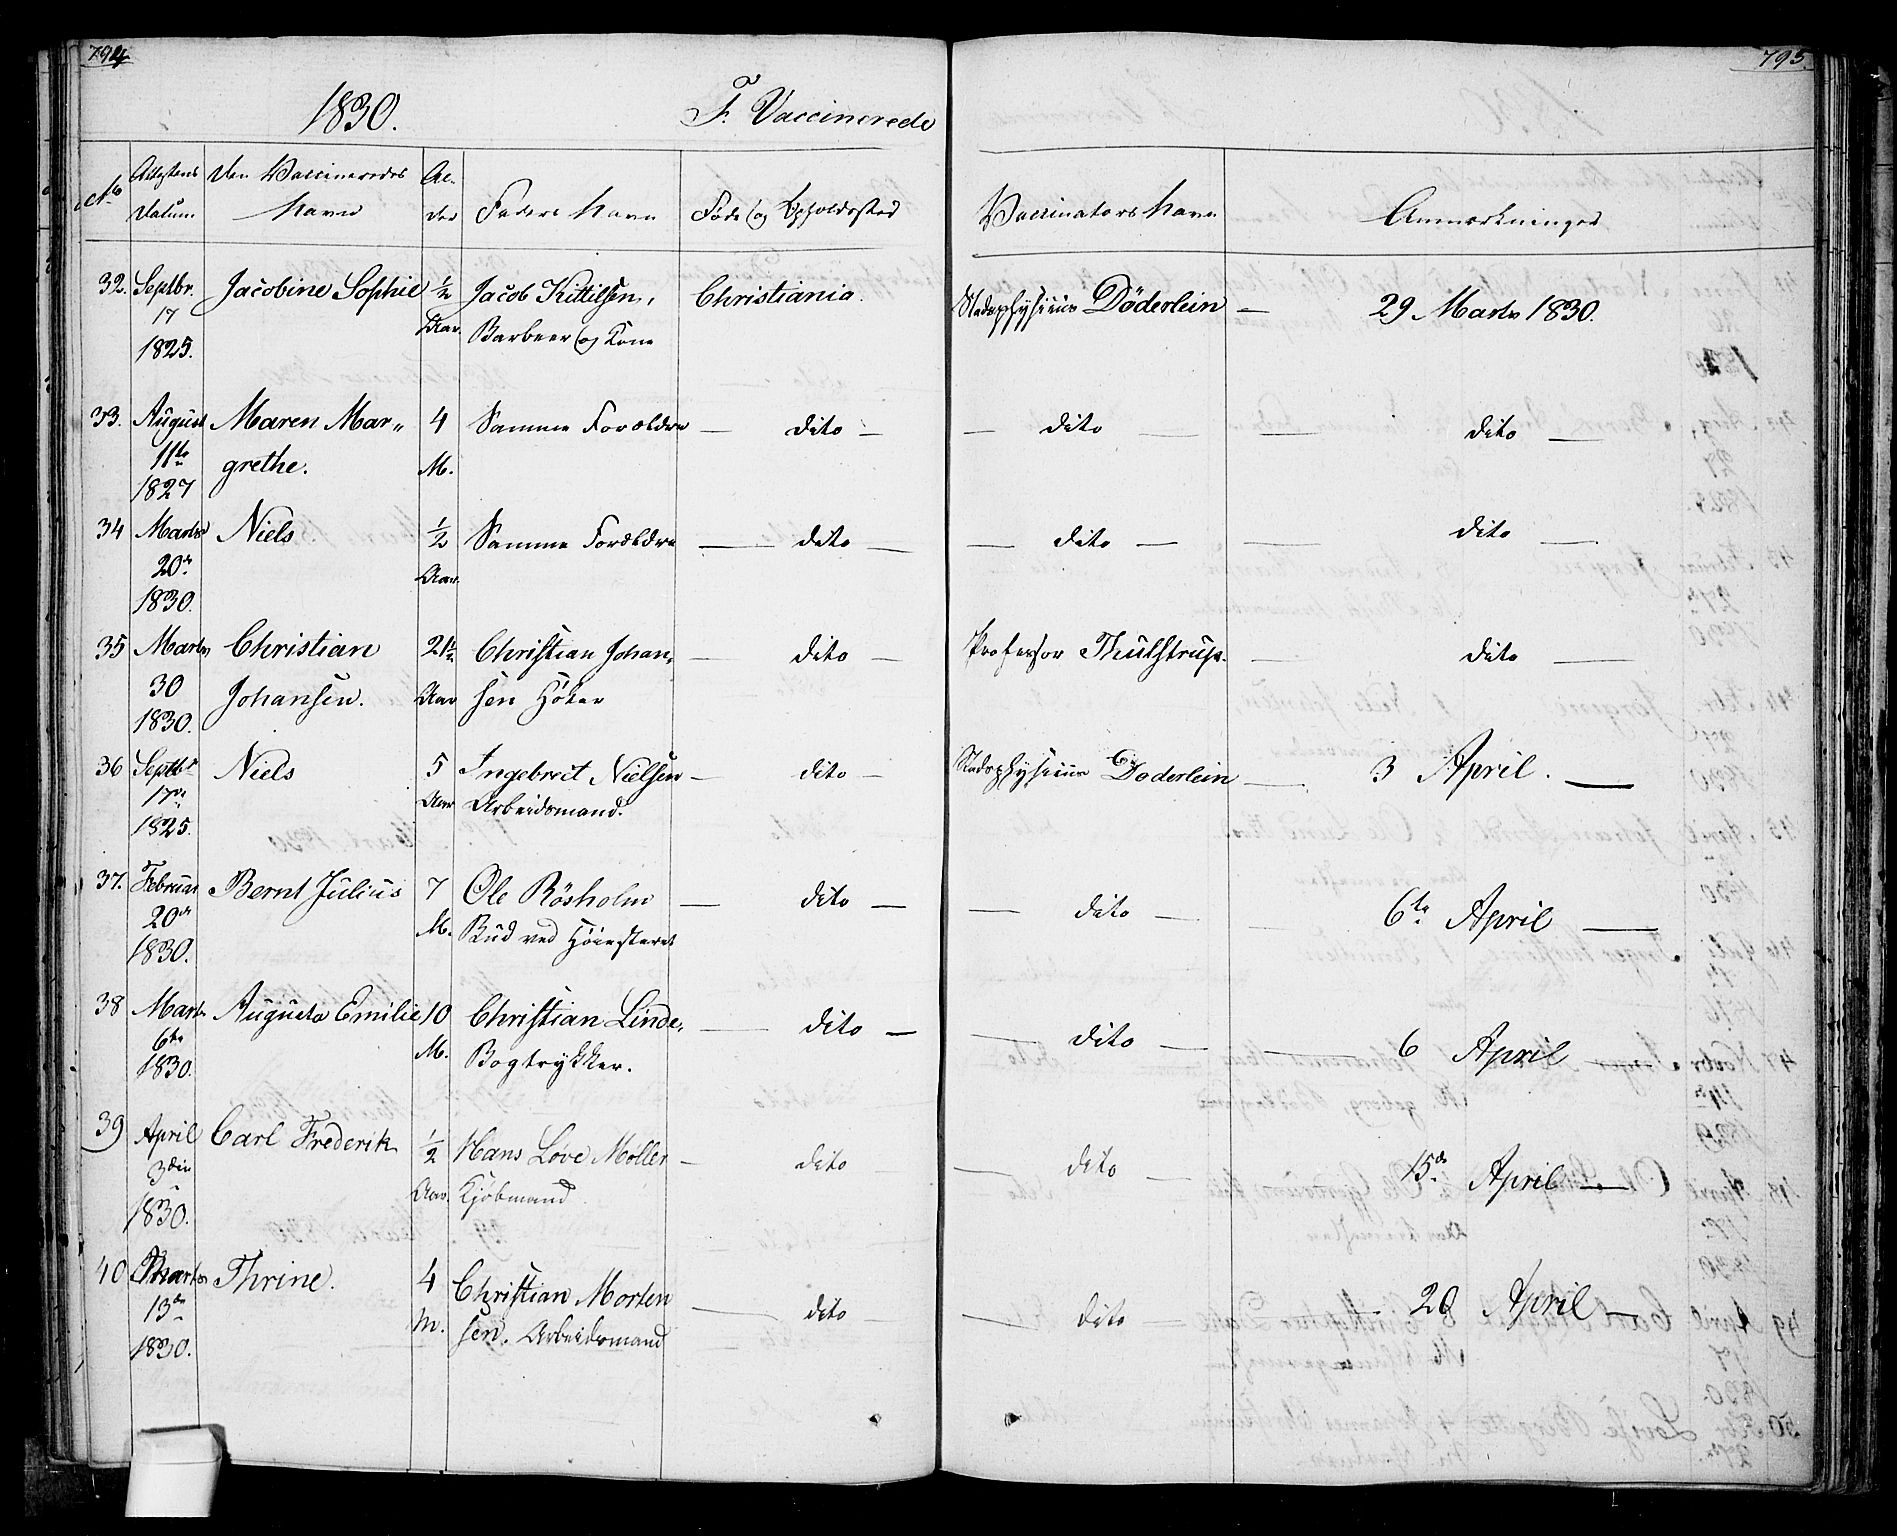 794
795.
1830.
F. Vaccinerede
No
Attestens Datum
Den Vaccineredes Navn
Alder
Faders Navn
Føde og Opholdssted
Vaccinators Navn
Anmærkninger
32. Septbr. 17 1825. Jacobine Sophie ½ Aar Jacob Kittilsen, Barbeer og Kone Christiania. Stadsphysicus Döderlein — 29 Marts 1830.
33. August 11te 1827 Maren Margrethe. 4 M. Samme Forældre — dito — — dito — — dito —
34 Marts 20de 1830. Niels ½ Aar Samme Forældre — dito — — dito — — dito —
35 Marts 30 1830. Christian Johansen. 2½ Aar Christian Johansen Höker — dito — Professor Thulstrup. — dito —
36 Septbr 17de 1825. Niels 5 Aar Ingebret Nielsen Arbeidsmand. — dito — Stadsphysicus Döderlein — 3 April. —
37. Februar 20de 1830. Bernt Julius 7 M. Ole Rösholm Bud ved Höiesteret — dito — — dito — 6te April —
38 Marts 6te 1830. Augusta Emilie 10 M. Christian Linde, Bogtrykker. — dito — — dito — 6 April —
39 April 3die 1830. Carl Frederik ½ Aar Hans Löve Møller Kjöbmand — dito — dito — 15de April —
40 Marts 13de 1830. Thrine. 4 M. Christian Mortensen. Arbeidsmand — dito — — dito — 28 April —